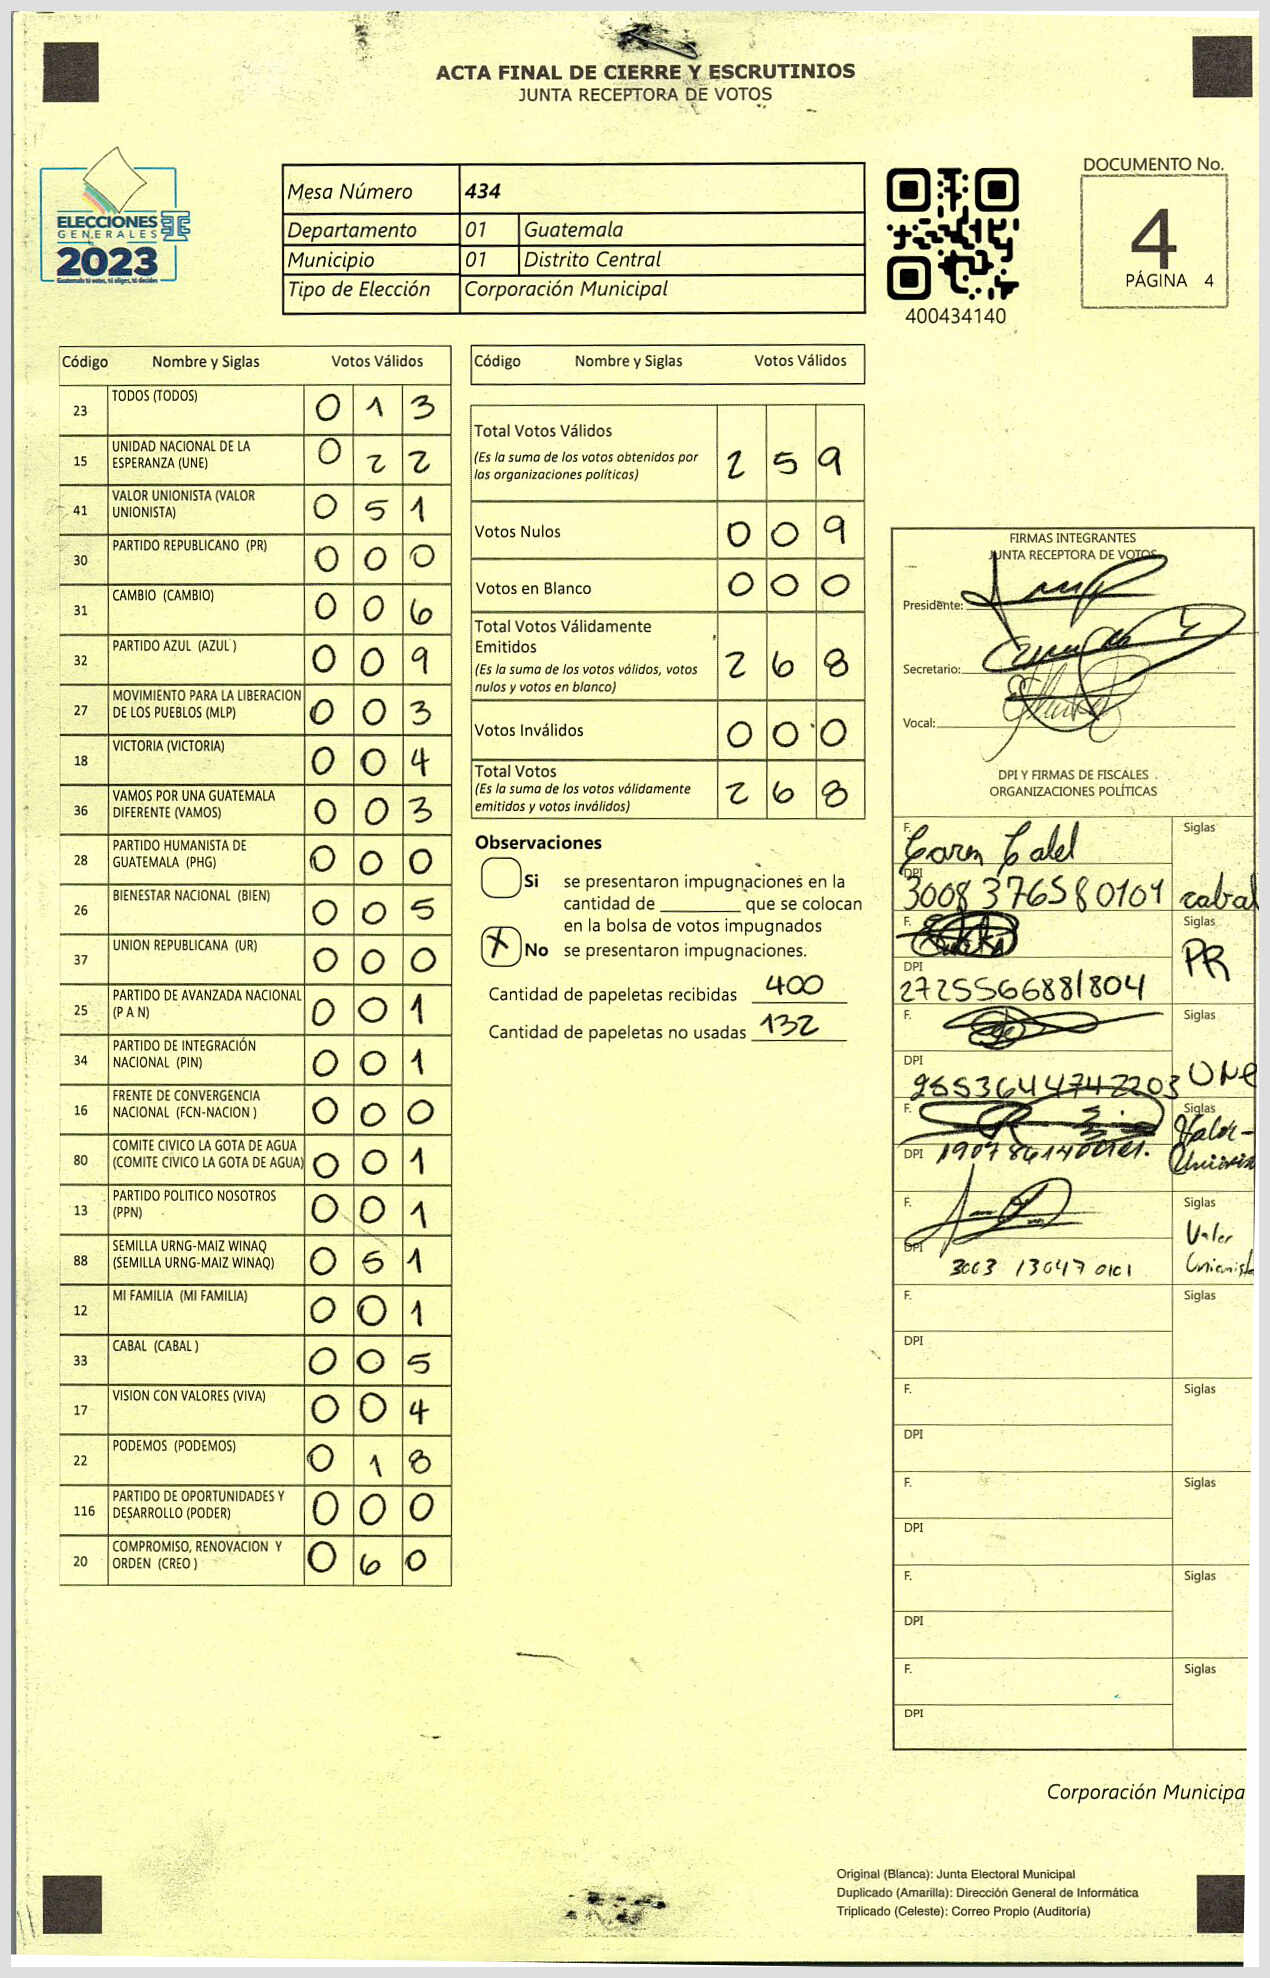 ACTA FINAL DE CIERRE Y ESCRUTINIOS
JUNTA RECEPTORA DE VOTOS
ELECCIONES
GENERALES
2023
Guatemala tú votas, tú eliges, tú decides
Mesa Número 434
Departamento 01 Guatemala
Municipio 01 Distrito Central
Tipo de Elección Corporación Municipal
400434140
DOCUMENTO No.
4
PÁGINA 4
Código Nombre y Siglas Votos Válidos
23 TODOS (TODOS) 0 1 3
15 UNIDAD NACIONAL DE LA ESPERANZA (UNE) 0 2 2
41 VALOR UNIONISTA (VALOR UNIONISTA) 0 5 1
30 PARTIDO REPUBLICANO (PR) 0 0 0
31 CAMBIO (CAMBIO) 0 0 6
32 PARTIDO AZUL (AZUL ) 0 0 9
27 MOVIMIENTO PARA LA LIBERACION DE LOS PUEBLOS (MLP) 0 0 3
18 VICTORIA (VICTORIA) 0 0 4
36 VAMOS POR UNA GUATEMALA DIFERENTE (VAMOS) 0 0 3
28 PARTIDO HUMANISTA DE GUATEMALA (PHG) 0 0 0
26 BIENESTAR NACIONAL (BIEN) 0 0 5
37 UNION REPUBLICANA (UR) 0 0 0
25 PARTIDO DE AVANZADA NACIONAL (P A N) 0 0 1
34 PARTIDO DE INTEGRACIÓN NACIONAL (PIN) 0 0 1
16 FRENTE DE CONVERGENCIA NACIONAL (FCN-NACION ) 0 0 0
80 COMITE CIVICO LA GOTA DE AGUA (COMITE CIVICO LA GOTA DE AGUA) 0 0 1
13 PARTIDO POLITICO NOSOTROS (PPN) 0 0 1
88 SEMILLA URNG-MAIZ WINAQ (SEMILLA URNG-MAIZ WINAQ) 0 5 1
12 MI FAMILIA (MI FAMILIA) 0 0 1
33 CABAL (CABAL ) 0 0 5
17 VISION CON VALORES (VIVA) 0 0 4
22 PODEMOS (PODEMOS) 0 1 8
116 PARTIDO DE OPORTUNIDADES Y DESARROLLO (PODER) 0 0 0
20 COMPROMISO, RENOVACION Y ORDEN (CREO ) 0 6 0
Código Nombre y Siglas Votos Válidos
Total Votos Válidos
(Es la suma de los votos obtenidos por
las organizaciones políticas) 2 5 9
Votos Nulos 0 0 9
Votos en Blanco 0 0 0
Total Votos Válidamente
Emitidos
(Es la suma de los votos válidos, votos
nulos y votos en blanco) 2 6 8
Votos Inválidos 0 0 0
Total Votos
(Es la suma de los votos válidamente
emitidos y votos inválidos) 2 6 8
Observaciones
Si se presentaron impugnaciones en la
cantidad de ________ que se colocan
en la bolsa de votos impugnados
X No se presentaron impugnaciones.
Cantidad de papeletas recibidas 400
Cantidad de papeletas no usadas 132
FIRMAS INTEGRANTES
JUNTA RECEPTORA DE VOTOS
Presidente:
Secretario:
Vocal:
DPI Y FIRMAS DE FISCALES
ORGANIZACIONES POLÍTICAS
F. Siglas
DPI 3008 37658 0101 cabal
F. Siglas
PR
DPI
2725566881804
F. Siglas
DPI
2553644742203 UNe
F. Siglas
Valor-
DPI
F. Siglas
Valor
Unionista
DPI
3003 13047 0101
F. Siglas
DPI
F. Siglas
DPI
F. Siglas
DPI
F. Siglas
DPI
F. Siglas
DPI
Corporación Municipa
Original (Blanca): Junta Electoral Municipal
Duplicado (Amarilla): Dirección General de Informática
Triplicado (Celeste): Correo Propio (Auditoría)